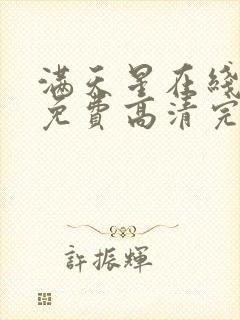 满天星在线
免费高清完
許振輝